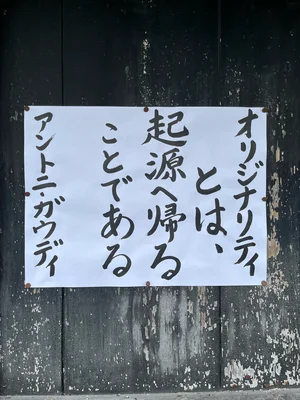 オリジナリティ
とは、
起源へ帰る
ことである
アントニガウディ